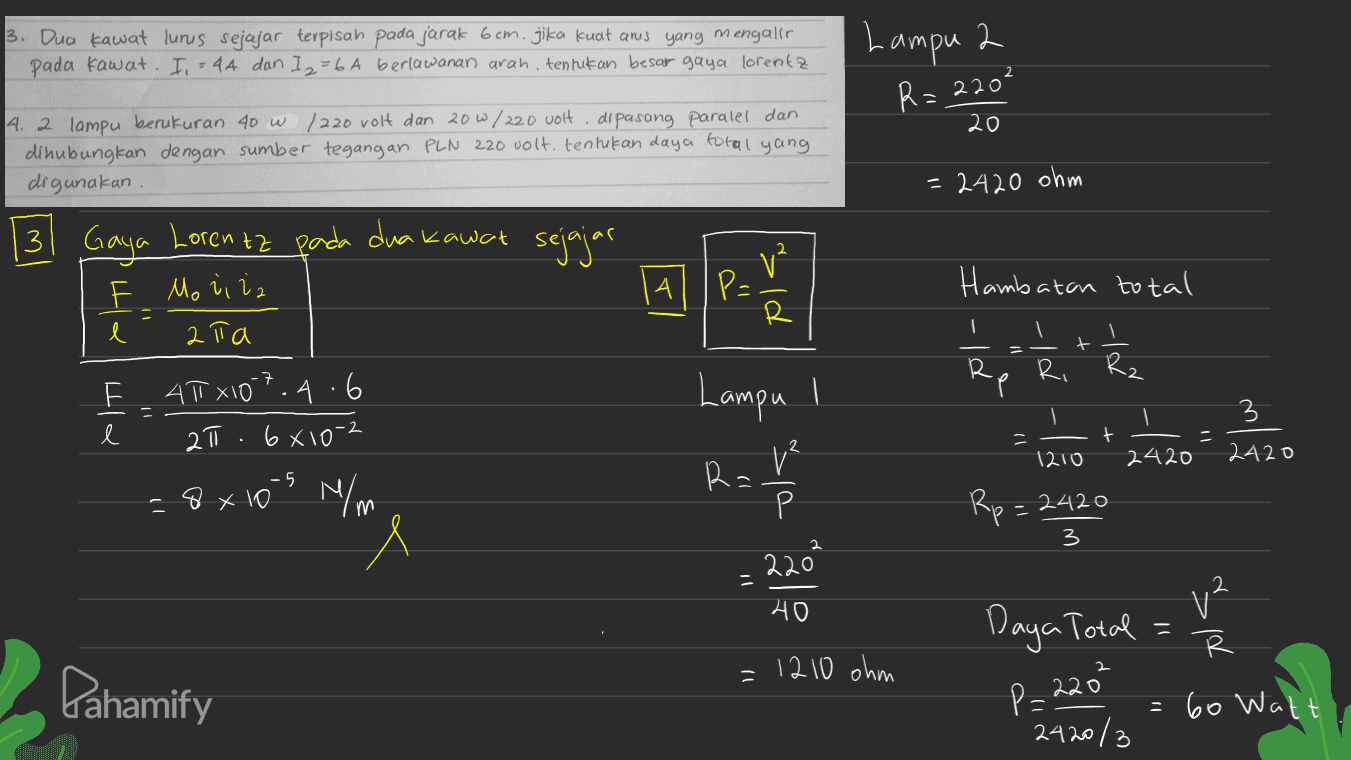 3. Dua kawat lurus sejajar terpisah pada jarak 6 cm. jika kuat arus yang mengalir
pada kawat. I₁ = 4A dan I₂ = 6A berlawanan arah. tentukan besar gaya lorentz
4. 2 lampu berukuran 40 w /220 volt dan 20 w/220 volt. dipasang paralel dan
dihubungkan dengan sumber tegangan PLN 220 volt. tentukan daya total yang
digunakan.
3 Gaya Lorentz pada dua kawat sejajar
F/l = μ₀ i₁ i₂ / 2πa
F/l = 4π x10⁻⁷ . 4 . 6 / 2π . 6 x10⁻²
= 8 x 10⁻⁵ N/m
4 P = V²/R
Lampu 1
R = V²/P
= 220²/40
= 1210 ohm
Lampu 2
R = 220²/20
= 2420 ohm
Hambatan total
1/Rp = 1/R₁ + 1/R₂
= 1/1210 + 1/2420 = 3/2420
Rp = 2420/3
Daya Total = V²/R
P = 220² / 2420/3 = 60 Watt
Pahamify